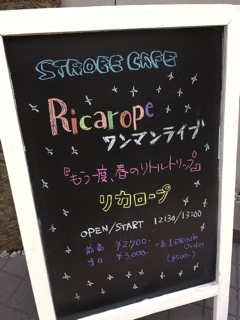 STROBE CAFE
Ricarope
ワンマンライブ
『もう一度、春のリトルトリップ』
リカロープ
OPEN/START 12:30/13:00
前売 ¥2,700-
当日 ¥3,000-
+各1DRINK
Order
(¥500-)